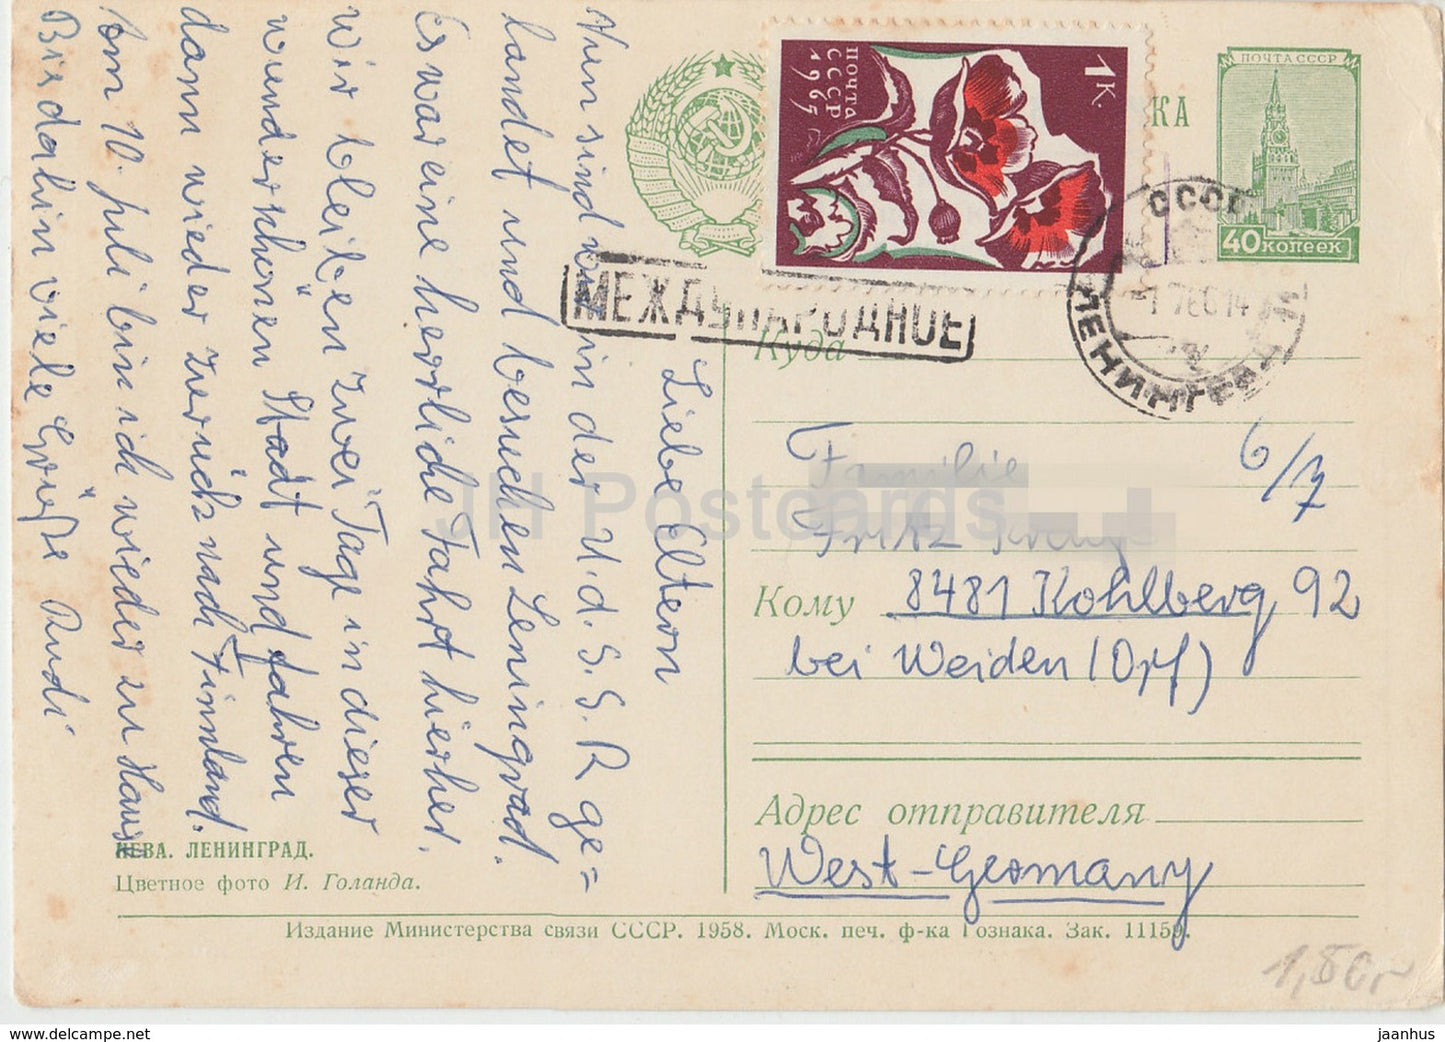 Liebe Eltern
Nun sind wir in der U.d.S.S.R ge=
landet und besuchen Leningrad.
Es war eine herrliche Fahrt hierher.
Wir bleiben zwei Tage in dieser
wunderschönen Stadt und fahren
dann wieder zurück nach Finnland.
Am 10. Juli bin ich wieder zu Hause
Bis dahin viele Grüße Rudi
НЕВА. ЛЕНИНГРАД.
Цветное фото И. Голанда.
ПОЧТА
СССР
1965
1 К.
КА
ПОЧТА СССР
40 КОПЕЕК
МЕЖДУНАРОДНОЕ
СССР
ЛЕНИНГРАД
Куда
Familie
Fritz
6/7
Кому 8481 Kohlberg 92
bei Weiden (Opf)
Адрес отправителя
West-Germany
Издание Министерства связи СССР. 1958. Моск. печ. ф-ка Гознака. Зак. 11159.
JH Postcards
www.delcampe.net
jaanhus